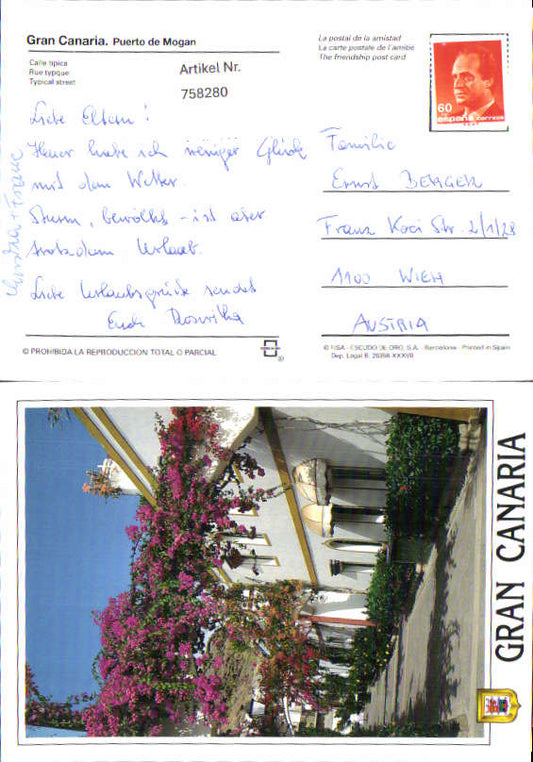 Gran Canaria. Puerto de Mogan
Calle típica
Rue typique
Typical street
Artikel Nr.
758280
La postal de la amistad
La carte postale de l'amitié
The friendship post card
60
españa correos
Liebe Eltern!
Heuer habe ich weniger Glück
mit dem Wetter.
Sturm, bewölkt - ist aber
trotzdem Urlaub.
Liebe Urlaubsgrüße sendet
Euch Roswitha
+ Franz
Familie
Ernst BERGER
Franz Koci Str. 2/1/28
1100 WIEN
AUSTRIA
© PROHIBIDA LA REPRODUCCION TOTAL O PARCIAL
© FISA - ESCUDO DE ORO, S.A. - Barcelona - Printed in Spain
Dep. Legal B. 28358 XXXVII
GRAN CANARIA